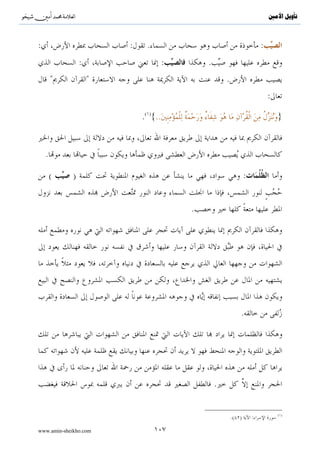 تأويل الأمين
العلامة محمد أمين شيخو
الصيِّب: مأخوذة من أصاب وهو سحاب من السماء. تقول: أصاب السحاب بمطره الأرض، أي:
وقع مطره عليها فهو صيِّب. وهكذا فالصيِّب: إنما تعني صاحب الإصابة، أي: السحاب الذي
يصيب مطره الأرض. وقد عنت به الآية الكريمة هنا على وجه الاستعارة "القرآن الكريم" قال
تعالى:
{وَنُنَزِّلُ مِنَ الْقُرْآنِ مَا هُوَ شِفَاءٌ وَرَحْمَةٌ لِلْمُؤْمِنِينَ..}(١).
فالقرآن الكريم بما فيه من هداية إلى طريق معرفة الله تعالى، وبما فيه من دلالة إلى سبيل الحق والخير
كالسحاب الذي يُصيب مطره الأرض العطشى فيروي ظمأها ويكون سبباً في حياتها بعد موتها.
وأما الظُّلُمات: هي سواد، فهي ما ينشأ عن هذه الغيوم المنطوية تحت كلمة ( صيِّب ) من
حُجُبٍ لنور الشمس، فإذا ما انجلت السماء وعاد النور تمتّعت الأرض بهذه الشمس بعد نزول
المطر عليها متعةً كلها خير وخصب.
وهكذا فالقرآن الكريم إنما ينطوي على آيات تحجر على المنافق شهواته التي هي نوره ومطمع أمله
في الحياة، فإن هو طبَّق دلالة القرآن وسار عليها وأشرق في نفسه نور خالقه فهنالك يعود إلى
الشهوات من وجهها العالي الذي يرجع عليه بالسعادة في دنياه وآخرته، فلا يعود مثلاً يأخذ ما
يشتهيه من المال عن طريق الغش والخداع، ولكن من طريق الكسب المشروع والنصح في البيع
ويكون هذا المال بسبب إنفاقه إيَّاه في وجوهه المشروعة عوناً له على الوصول إلى السعادة والقرب
زلفى من خالقه.
وهكذا فالظلمات إنما يراد بها تلك الآيات التي تمنع المنافق من الشهوات التي يباشرها من تلك
الطريق الملتوية والوجه المنحط فهو لا يريد أن تحجره عنها وبيانك يقع ظلمة عليه لأن شهواته كما
يراها كل أمله من هذه الحياة، ولو عقل ما عقله المؤمن من رحمة الله تعالى وحنانه لما رأى في هذا
الحجر والمنع إلاَّ كل خير. فالطفل الصغير قد تحجره عن أن يبري قلمه بموس الحلاقة فيغضب
(١) سورة الإسراء: الآية (٨٢).
١٠٧
www.amin-sheikho.com